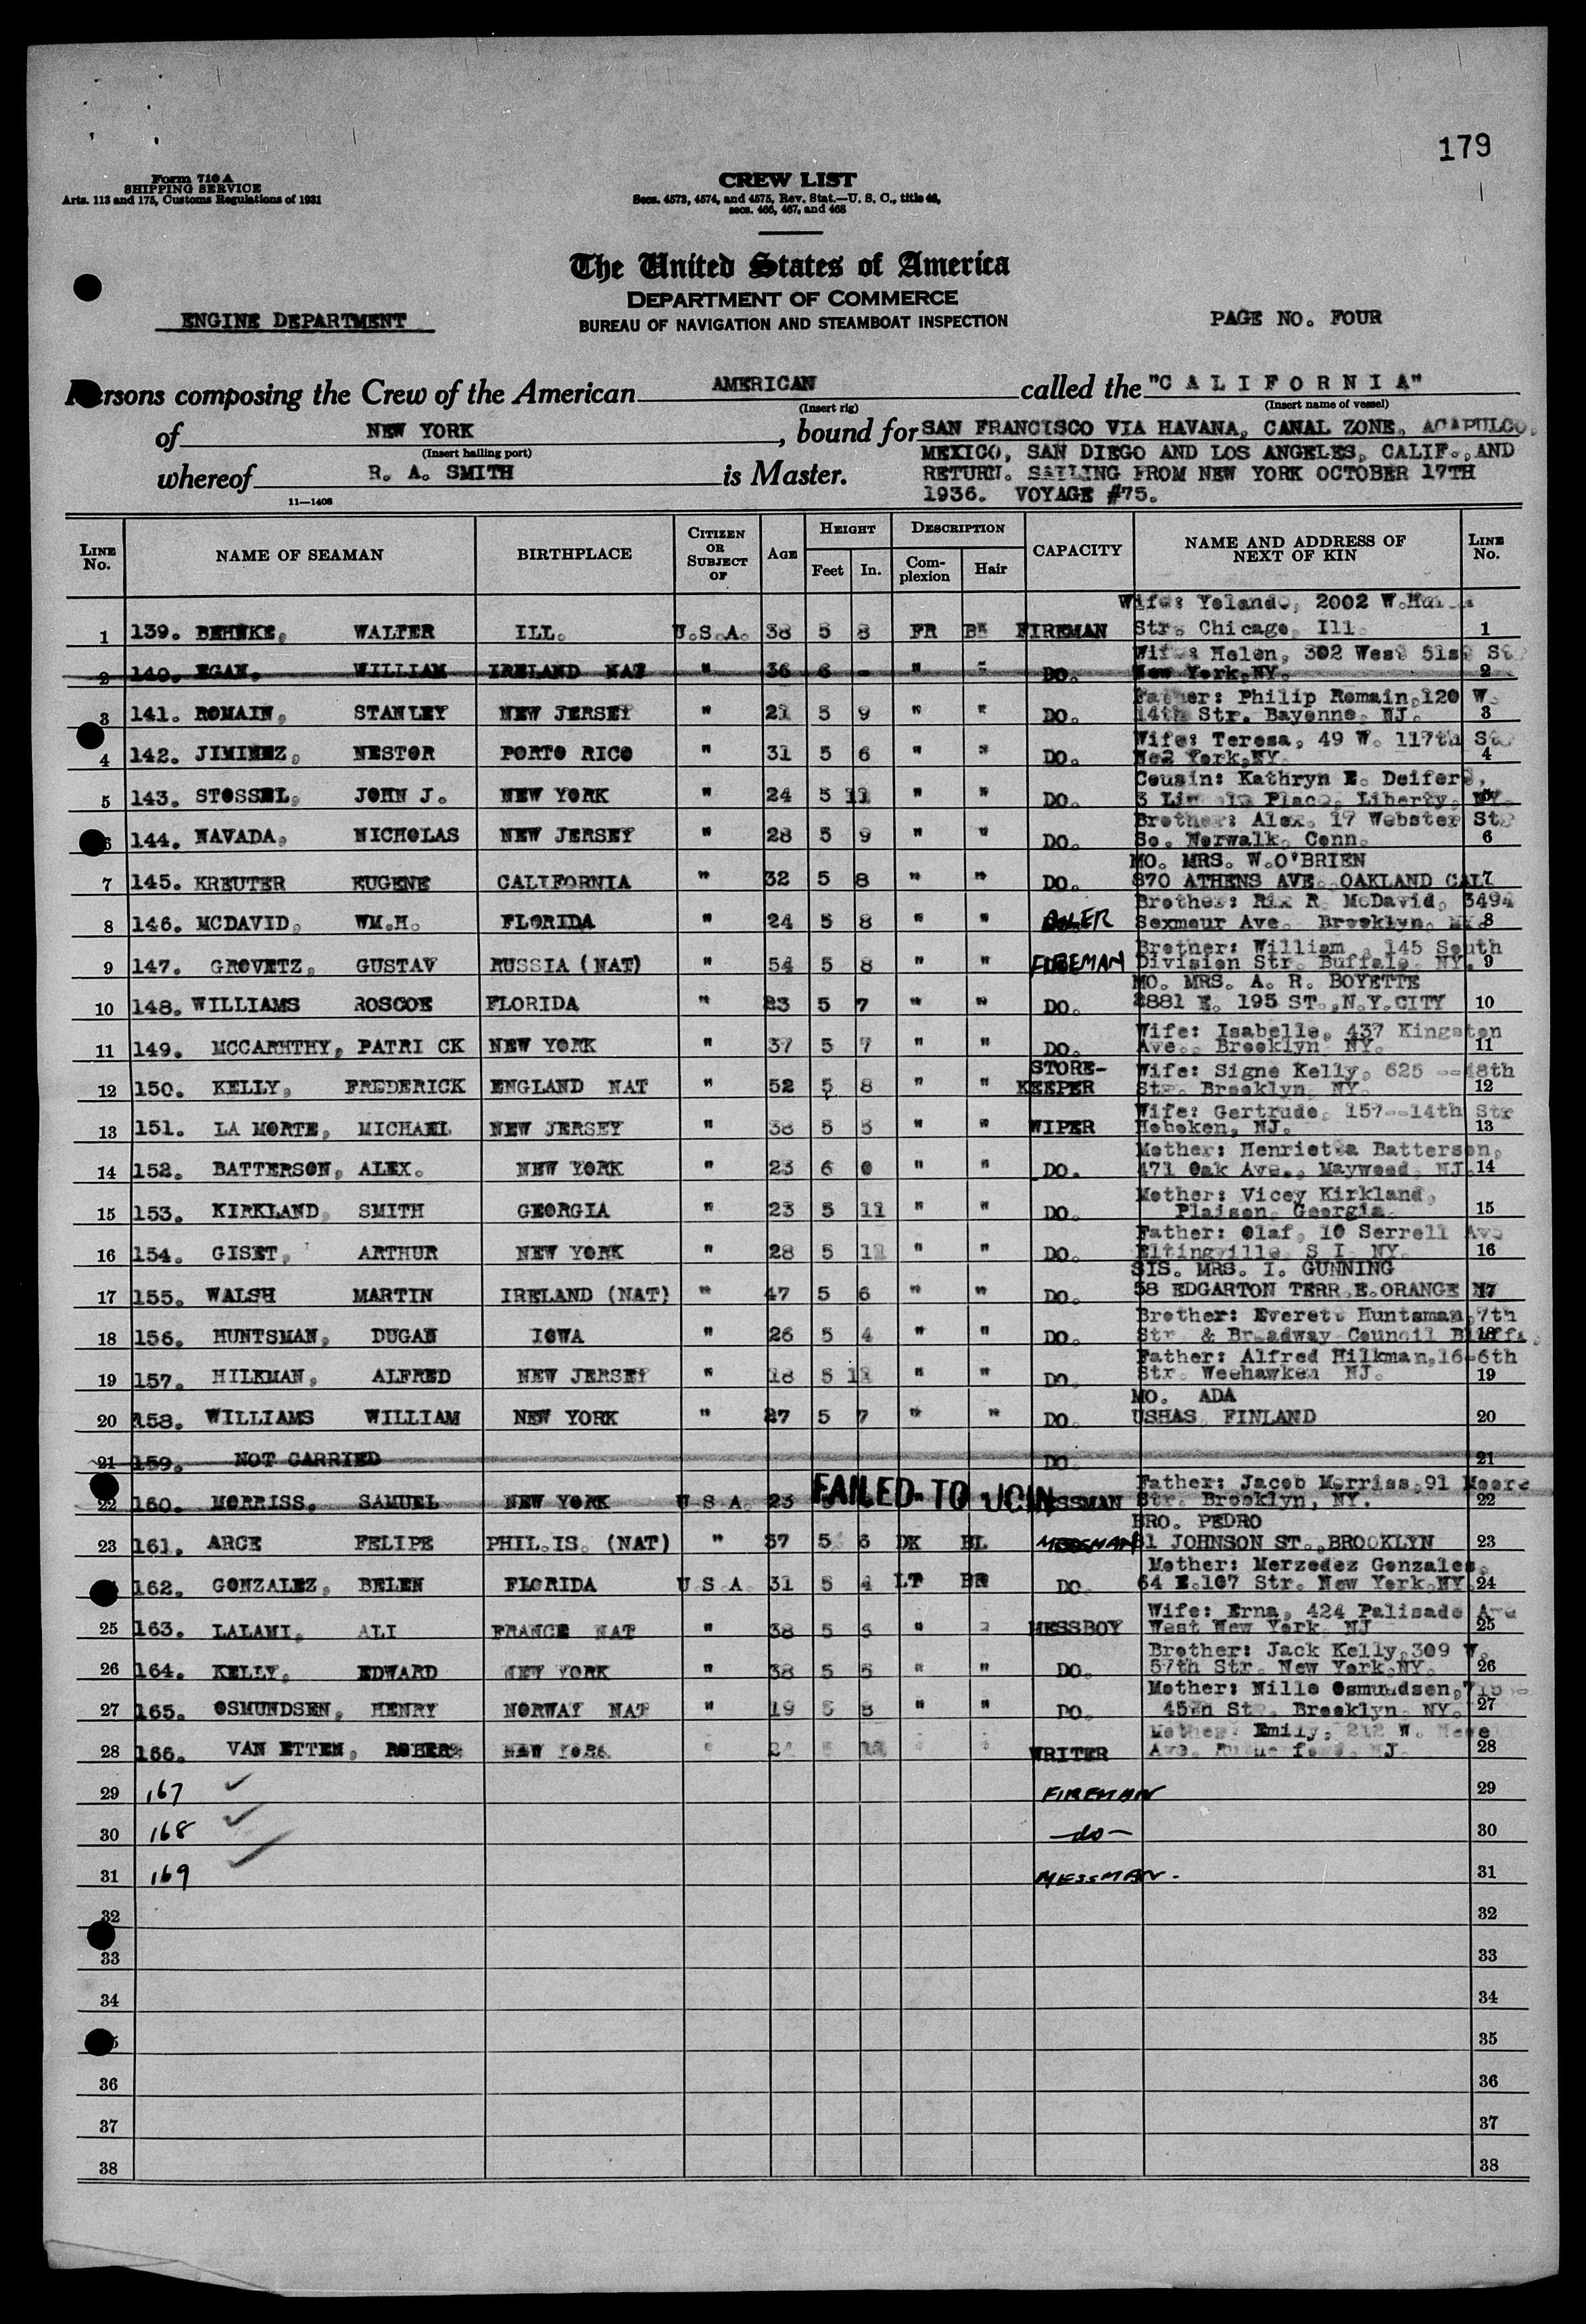 179
Form 710 A
SHIPPING SERVICE
Arts. 113 and 175, Customs Regulations of 1931
CREW LIST
Secs. 4573, 4574, and 4575, Rev. Stat.—U. S. C., title 46,
secs. 466, 467, and 468
The United States of America
DEPARTMENT OF COMMERCE
BUREAU OF NAVIGATION AND STEAMBOAT INSPECTION
ENGINE DEPARTMENT
PAGE NO. FOUR
Persons composing the Crew of the American AMERICAN called the "C A L I F O R N I A"
(Insert rig) (Insert name of vessel)
of NEW YORK, bound for SAN FRANCISCO VIA HAVANA, CANAL ZONE, ACAPULCO,
(Insert hailing port) MEXICO, SAN DIEGO AND LOS ANGELES, CALIF., AND
whereof R. A. SMITH is Master. RETURN. SAILING FROM NEW YORK OCTOBER 17TH
11—1408 1936. VOYAGE #75.
LINE No. NAME OF SEAMAN BIRTHPLACE CITIZEN OR SUBJECT OF AGE HEIGHT Feet In. DESCRIPTION Complexion Hair CAPACITY NAME AND ADDRESS OF NEXT OF KIN LINE No.
Wife: Yolando, 2002 W.
1 139. BEHNKE, WALTER ILL. U.S.A. 38 5 8 FR BN FIREMAN Str. Chicago, Ill 1
Wife: Helen, 302 West 51st St
2 140. EGAN, WILLIAM IRELAND NAT " 36 6 - " " DO. New York,NY. 2
Father: Philip Romain,120 W.
3 141. ROMAIN, STANLEY NEW JERSEY " 21 5 9 " " DO. 14th Str. Bayonne, NJ. 3
Wife: Teresa, 49 W. 117th St.
4 142. JIMINEZ, NESTOR PORTO RICO " 31 5 6 " " DO. Ne2 York,NY. 4
Cousin: Kathryn E. Deifer
5 143. STOSSEL, JOHN J. NEW YORK " 24 5 11 " " DO. 3 Lincoln Place, Liberty, NY. 5
Brother: Alex, 17 Webster St
6 144. NAVADA, NICHOLAS NEW JERSEY " 28 5 9 " " DO. So. Norwalk, Conn. 6
MO. MRS. W.O'BRIEN
7 145. KREUTER EUGENE CALIFORNIA " 32 5 8 " " DO. 870 ATHENS AVE. OAKLAND CAL 7
Brother: Rix R. McDavid, 3494
8 146. MCDAVID, WM.H. FLORIDA " 24 5 8 " " OILER Sexmour Ave. Brooklyn, NY. 8
Brother: William, 145 South
9 147. GROVETZ, GUSTAV RUSSIA (NAT) " 54 5 8 " " FIREMAN Division Str. Buffalo, NY. 9
MO. MRS. A. R. BOYETTE
10 148. WILLIAMS ROSCOE FLORIDA " 23 5 7 " " DO. 2881 E. 195 ST.,N.Y.CITY 10
Wife: Isabelle, 437 Kingston
11 149. MCCARHTHY, PATRI CK NEW YORK " 37 5 7 " " DO. Ave., Brooklyn NY. 11
STORE- Wife: Signe Kelly, 625 --48th
12 150. KELLY, FREDERICK ENGLAND NAT " 52 5 8 " " KEEPER Str. Brooklyn, NY. 12
Wife: Gertrude, 157--14th Str
13 151. LA MORTE, MICHAEL NEW JERSEY " 38 5 5 " " WIPER Hoboken, NJ. 13
Mother: Henrietta Batterson,
14 152. BATTERSON, ALEX. NEW YORK " 23 6 0 " " DO. 471 Oak Ave., Maywood, NJ. 14
Mother: Vicey Kirkland,
15 153. KIRKLAND, SMITH GEORGIA " 23 5 11 " " DO. Plaison, Georgia. 15
Father: Olaf, 10 Serrell Ave
16 154. GISET, ARTHUR NEW YORK " 28 5 11 " " DO. Eltingville, S I NY. 16
SIS. MRS. I. GUNNING
17 155. WALSH MARTIN IRELAND (NAT) " 47 5 6 " " DO. 58 EDGARTON TERR.E.ORANGE NJ 17
Brother: Everett Huntsman,7th
18 156. HUNTSMAN, DUGAN IOWA " 26 5 4 " " DO. Str. & Broadway Council Bluffs, 18
Father: Alfred Hilkman,16-6th
19 157. HILKMAN, ALFRED NEW JERSEY " 18 5 11 " " DO. Str. Weehawken NJ. 19
MO. ADA
20 158. WILLIAMS WILLIAM NEW YORK " 27 5 7 " " DO. USHAS, FINLAND 20
21 159. NOT CARRIED DO. 21
Father: Jacob Morriss,91 Moore
22 160. MORRISS, SAMUEL NEW YORK U S A 23 FAILED TO JOIN MESSMAN Str. Brooklyn, NY. 22
BRO. PEDRO
23 161. ARCE FELIPE PHIL.IS. (NAT) " 37 5 6 DK BL MESSMAN 81 JOHNSON ST.,BROOKLYN 23
Mother: Merzedez Gonzales,
162. GONZALEZ, BELEN FLORIDA U S A 31 5 4 LT BR DO. 64 E.107 Str. New York,NY. 24
Wife: Erna, 424 Palisade Ave
25 163. LALAMI, ALI FRANCE NAT " 38 5 5 " " MESSBOY West New York NJ 25
Brother: Jack Kelly,309 W.
26 164. KELLY, EDWARD NEW YORK " 38 5 5 " " DO. 57th Str. New York,NY. 26
Mother: Nille Osmundsen,715
27 165. OSMUNDSEN, HENRY NORWAY NAT " 19 5 8 " " DO. 45th St. Brooklyn, NY. 27
Mother: Emily, 212 W.
28 166. VAN ETTEN, ROBERT NEW YORK " 24 5 " " WRITER Ave. Rutherford, NJ. 28
29 167 ✓ FIREMAN 29
30 168 ✓ —do— 30
31 169 ✓ MESSMAN. 31
32 32
33 33
34 34
35
36 36
37 37
38 38